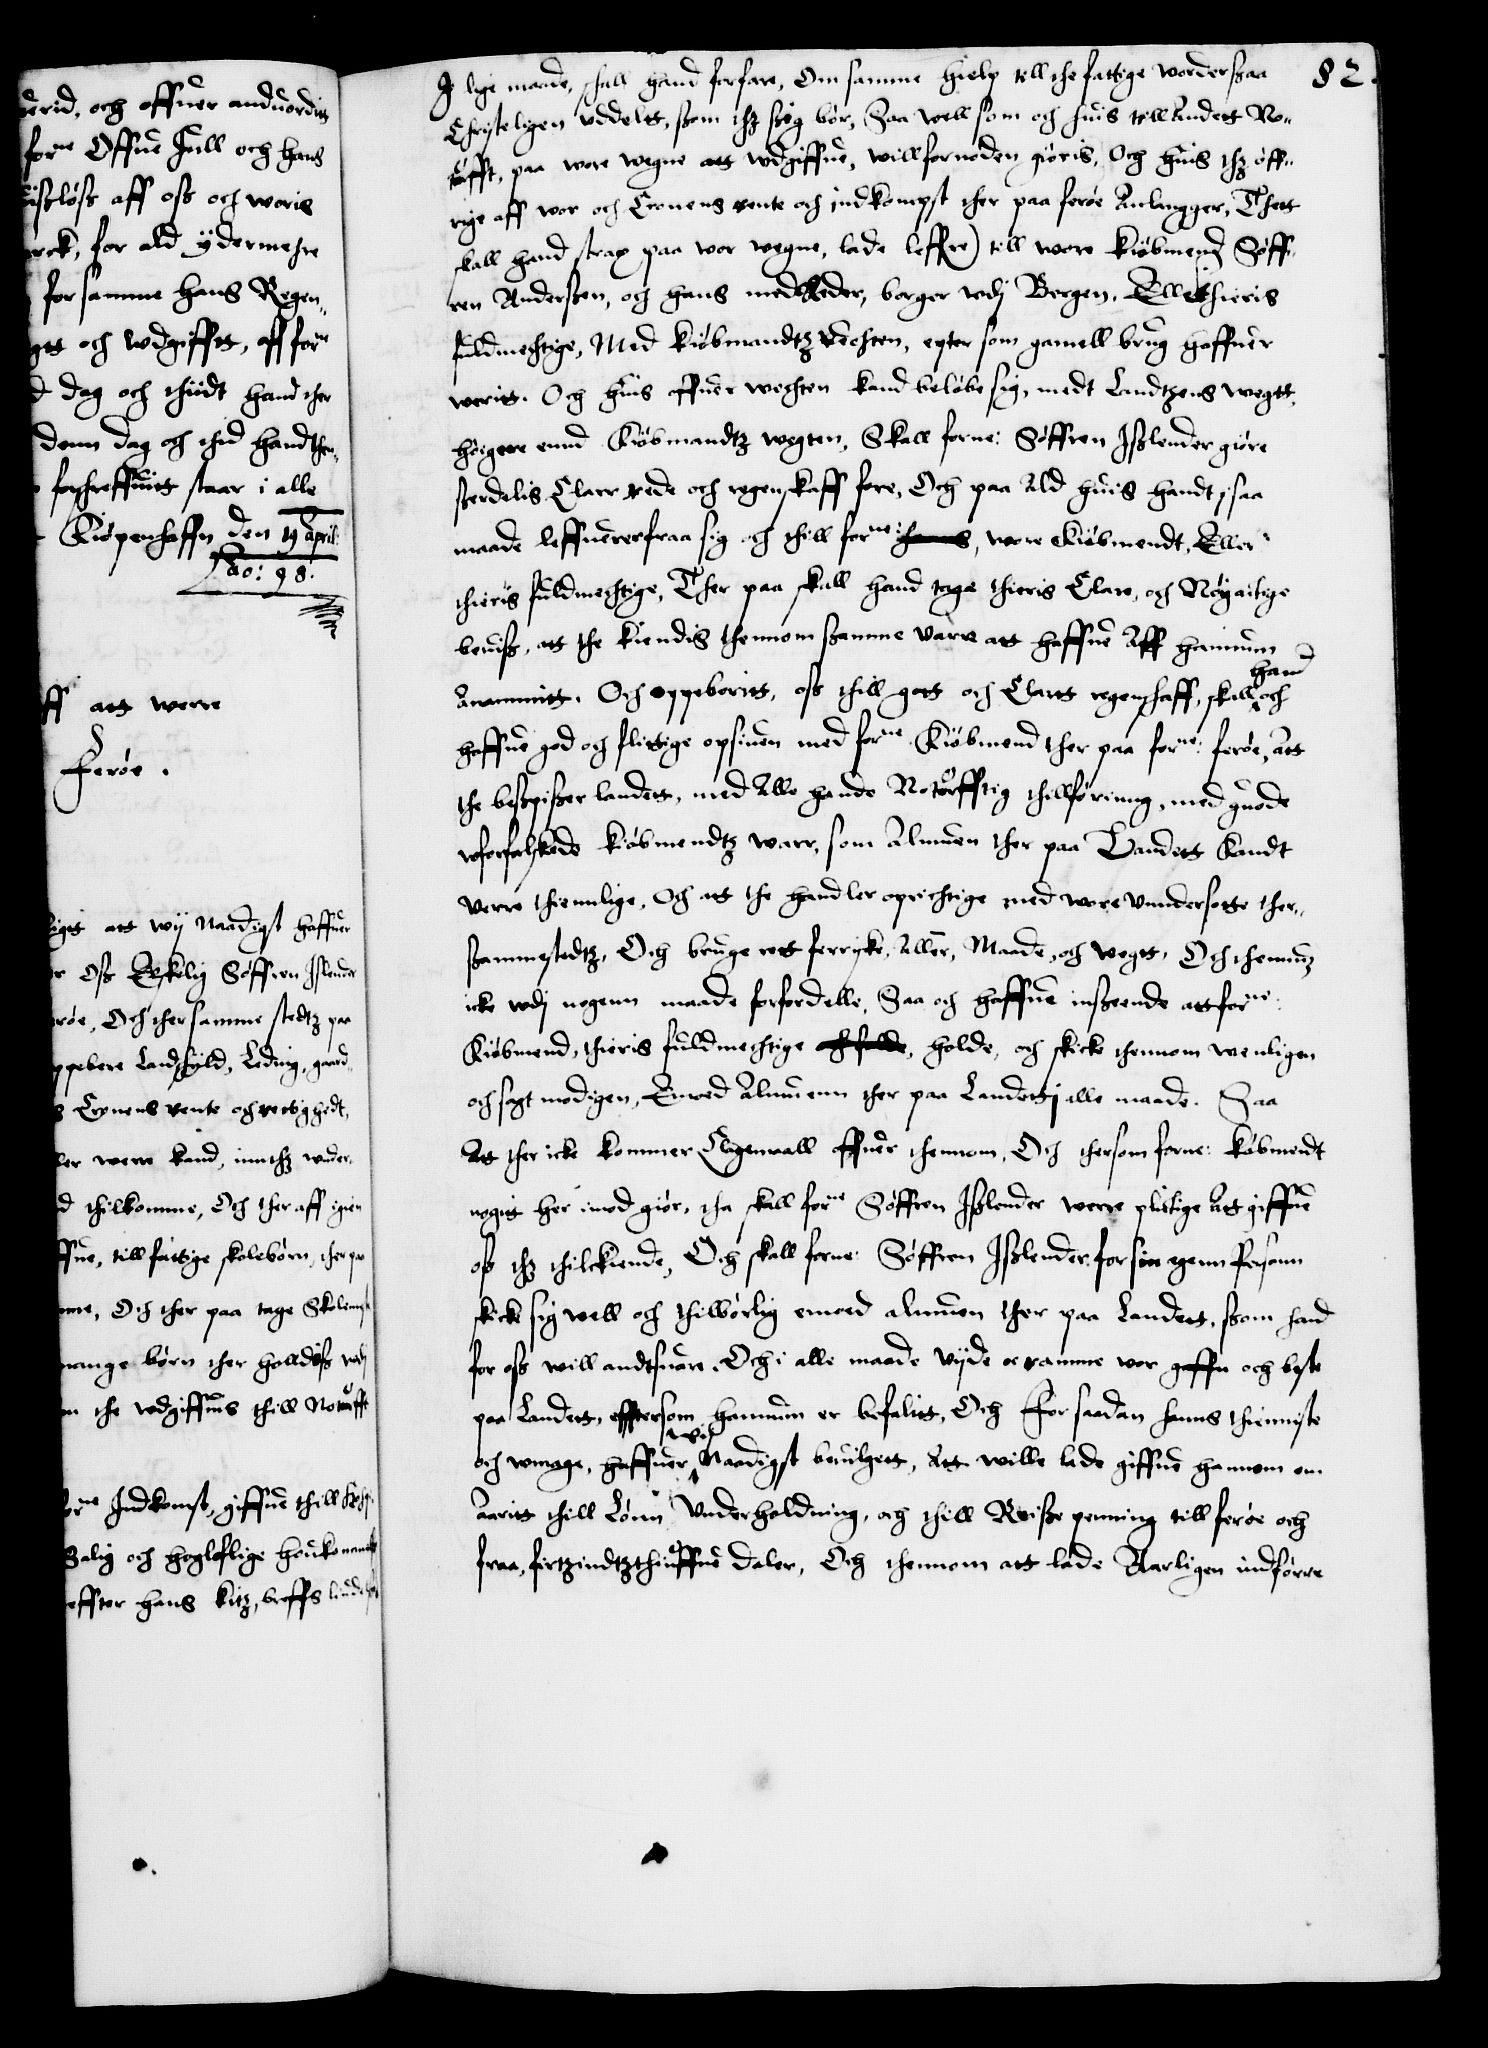 erid, och offuer anduordit
forne Offue Jull och hans
isløsz aff osz och woris
rck, for ald ydermehre
for samme hans Regen-
gt och wdgifftt, aff forne
d dag och thiidt hand ther
denn dag och thid hand ther
forschreffuitt staar i alle
Kiøpenhaffn den 19 April:
Ao: 98.
ff att werre
Ferøe.
ligt att wij naadigst haffuer
r osz Elskelig Søffren Islender
røe, Och ther samme stedtz paa
ppebere Landschyld, Leding, gaard-
s Cronens rente och rettighedt,
ler werre kand, inntz wider
d thilkomme, Och ther aff igien
ffue, till fattige skolebørn, ther paa
me, Och ther paa tage Skolemest
mange børn ther holldes wdj
m the wdgiffuis thill Notørfft
rne Indkomst, giffue thill
Salig och høglofflige houkommelse
effter hans breffs
82.
I lige maade, skall hand forfare, Om samme hielp till the fattige worder saa
Christeligen uddeltt, som thz sig bør, Saa well som och huis till Andett No-
tørfft, paa wore wegne att wdgiffue, will fornøden giøris, Och huis thz øff-
rige aff wor och Cronens rente och indkompst ther paa ferøe Anlangger, Thett
skall hand strax paa wor wegne, lade leffre till wore Kiøbmend Søff-
ren Anderssen, och hans medReder, borger wdj Bergen, Eller thieris
fuldmechtige, Med Kiøbmandtz wechten, epter som gamell brug haffuer
werit. Och huis offuer wechten kand beløbe sig, medt Landtzens wegtt,
høigere ennd Kiøbmandtz wegten, Skall forne: Søffren Iszlender giøre
serdelis Clarr rede och regenskaff fore, Och paa Ald huis handt i saa
maade leffuerer fraa sig och thill forne: hans, wore Kiøbmendt, Eller
thieris fuldmechtige, Ther paa skall hand tage thieris Clare, och Nøyachtige
beuisz, att the kiendis thennom samme varre att haffue Aff hannum
Anammitt. Och oppeboritt, osz thill gott och Clartt regenskaff, skall hand och
haffue god och flittige opsiuen med forne Kiøbmend ther paa forne: ferøe, Att
the bespisser landett, med Alle hande Notørfftig thillføring, med guode
wforfalskede kiøbmendtz warr, som Almuen ther paa Landett Kandt
verre thiennlige, Och att the handler oprichtige med wore Vnndersotte ther-
sammestedtz, Och bruge rett ferricke, Allen, Maade, och wegt, Och thennum
icke wdj nogenn maade forfordelle, Saa och haffue inseende att forne:
Kiøbmend, thieris fuldmechtige, holde, och skicke thennom wenligen
och sagtmodigen, Emod Almuenn ther paa Landett j alle maade. Saa
Att ther icke kommer Clagemaall offuer thennom, Och thersom forne: købmendt
nogit her imod giør, tha skall forne Søffren Iszlender werre plictige Att giffue
osz thz thilckiende, Och skall forne: Søffren Iszlender for sin egenn persoun
skicke sig well och thilbørlig emoed almuen ther paa Landett, som hand
for osz will andtsuare. Och i alle maade vijde oc ramme vor gaffn och beste
paa Landett, effttersom hannum er befalitt, Och for saadan hanns thienniste
och wmage, haffuer wij Naadigst beuilgett, Att wille lade giffue hannom om
Aaritt thill Lønn Vnderholdning, och thill Reise penning till ferøe och
fraa, firtzindtzthiuffue daler, Och thennom att lade Aarligen indførre